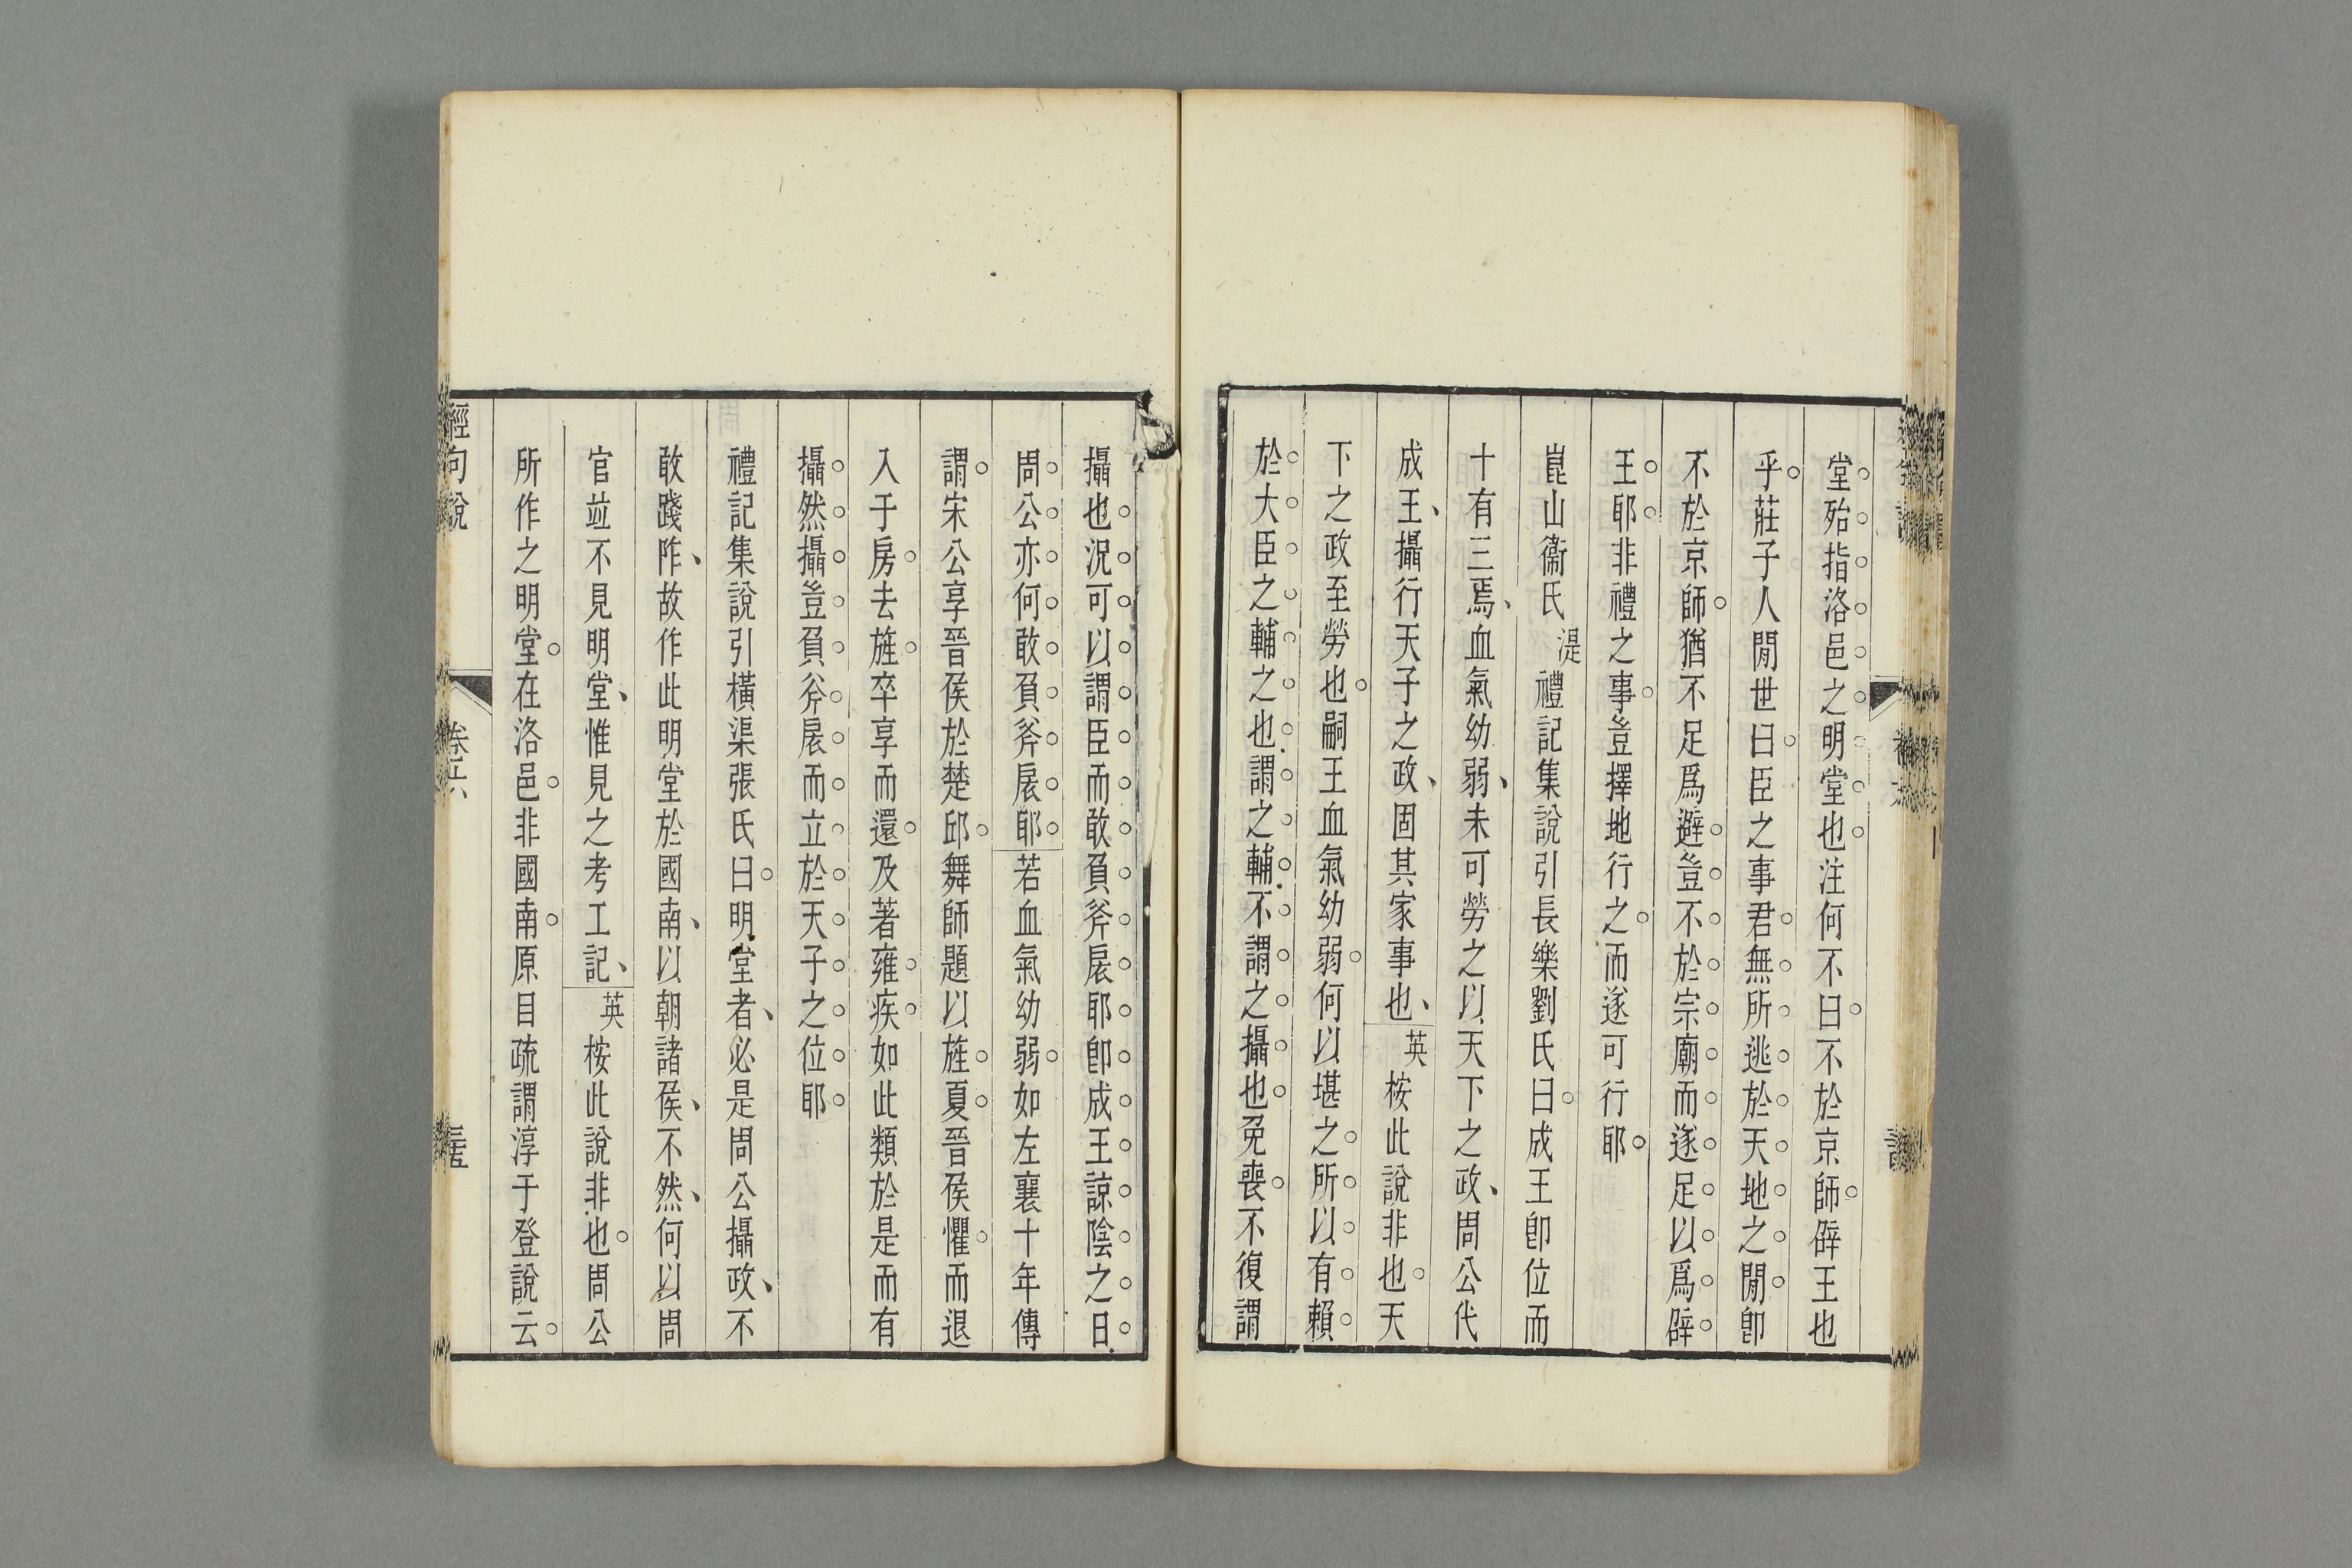 堂殆指洛邑之明堂也注何不曰不於京師辟王也
乎莊子人閒世曰臣之事君無所逃於天地之閒卽
不於京師猶不足爲避豈不於宗廟而遂足以爲辟
王耶非禮之事豈擇地行之而遂可行耶
崑山衞氏湜禮記集說引長樂劉氏曰成王卽位而
十有三焉血氣幼弱未可勞之以天下之政周公代
成王攝行天子之政固其家事也英桉此說非也天
下之政至勞也嗣王血氣幼弱何以堪之所以有賴
於大臣之輔之也謂之輔不謂之攝也免喪不復謂
攝也況可以謂臣而敢負斧扆耶卽成王諒陰之日
周公亦何敢負斧扆耶若血氣幼弱如左襄十年傳
謂宋公享晉侯於楚邱舞師題以旌夏晉侯懼而退
入于房去旌卒享而還及著雍疾如此類於是而有
攝然攝豈負斧扆而立於天子之位耶
禮記集說引橫渠張氏曰明堂者必是周公攝政不
敢踐阼故作此明堂於國南以朝諸侯不然何以周
官竝不見明堂惟見之考工記英桉此說非也周公
所作之明堂在洛邑非國南原目疏謂淳于登說云
經句說